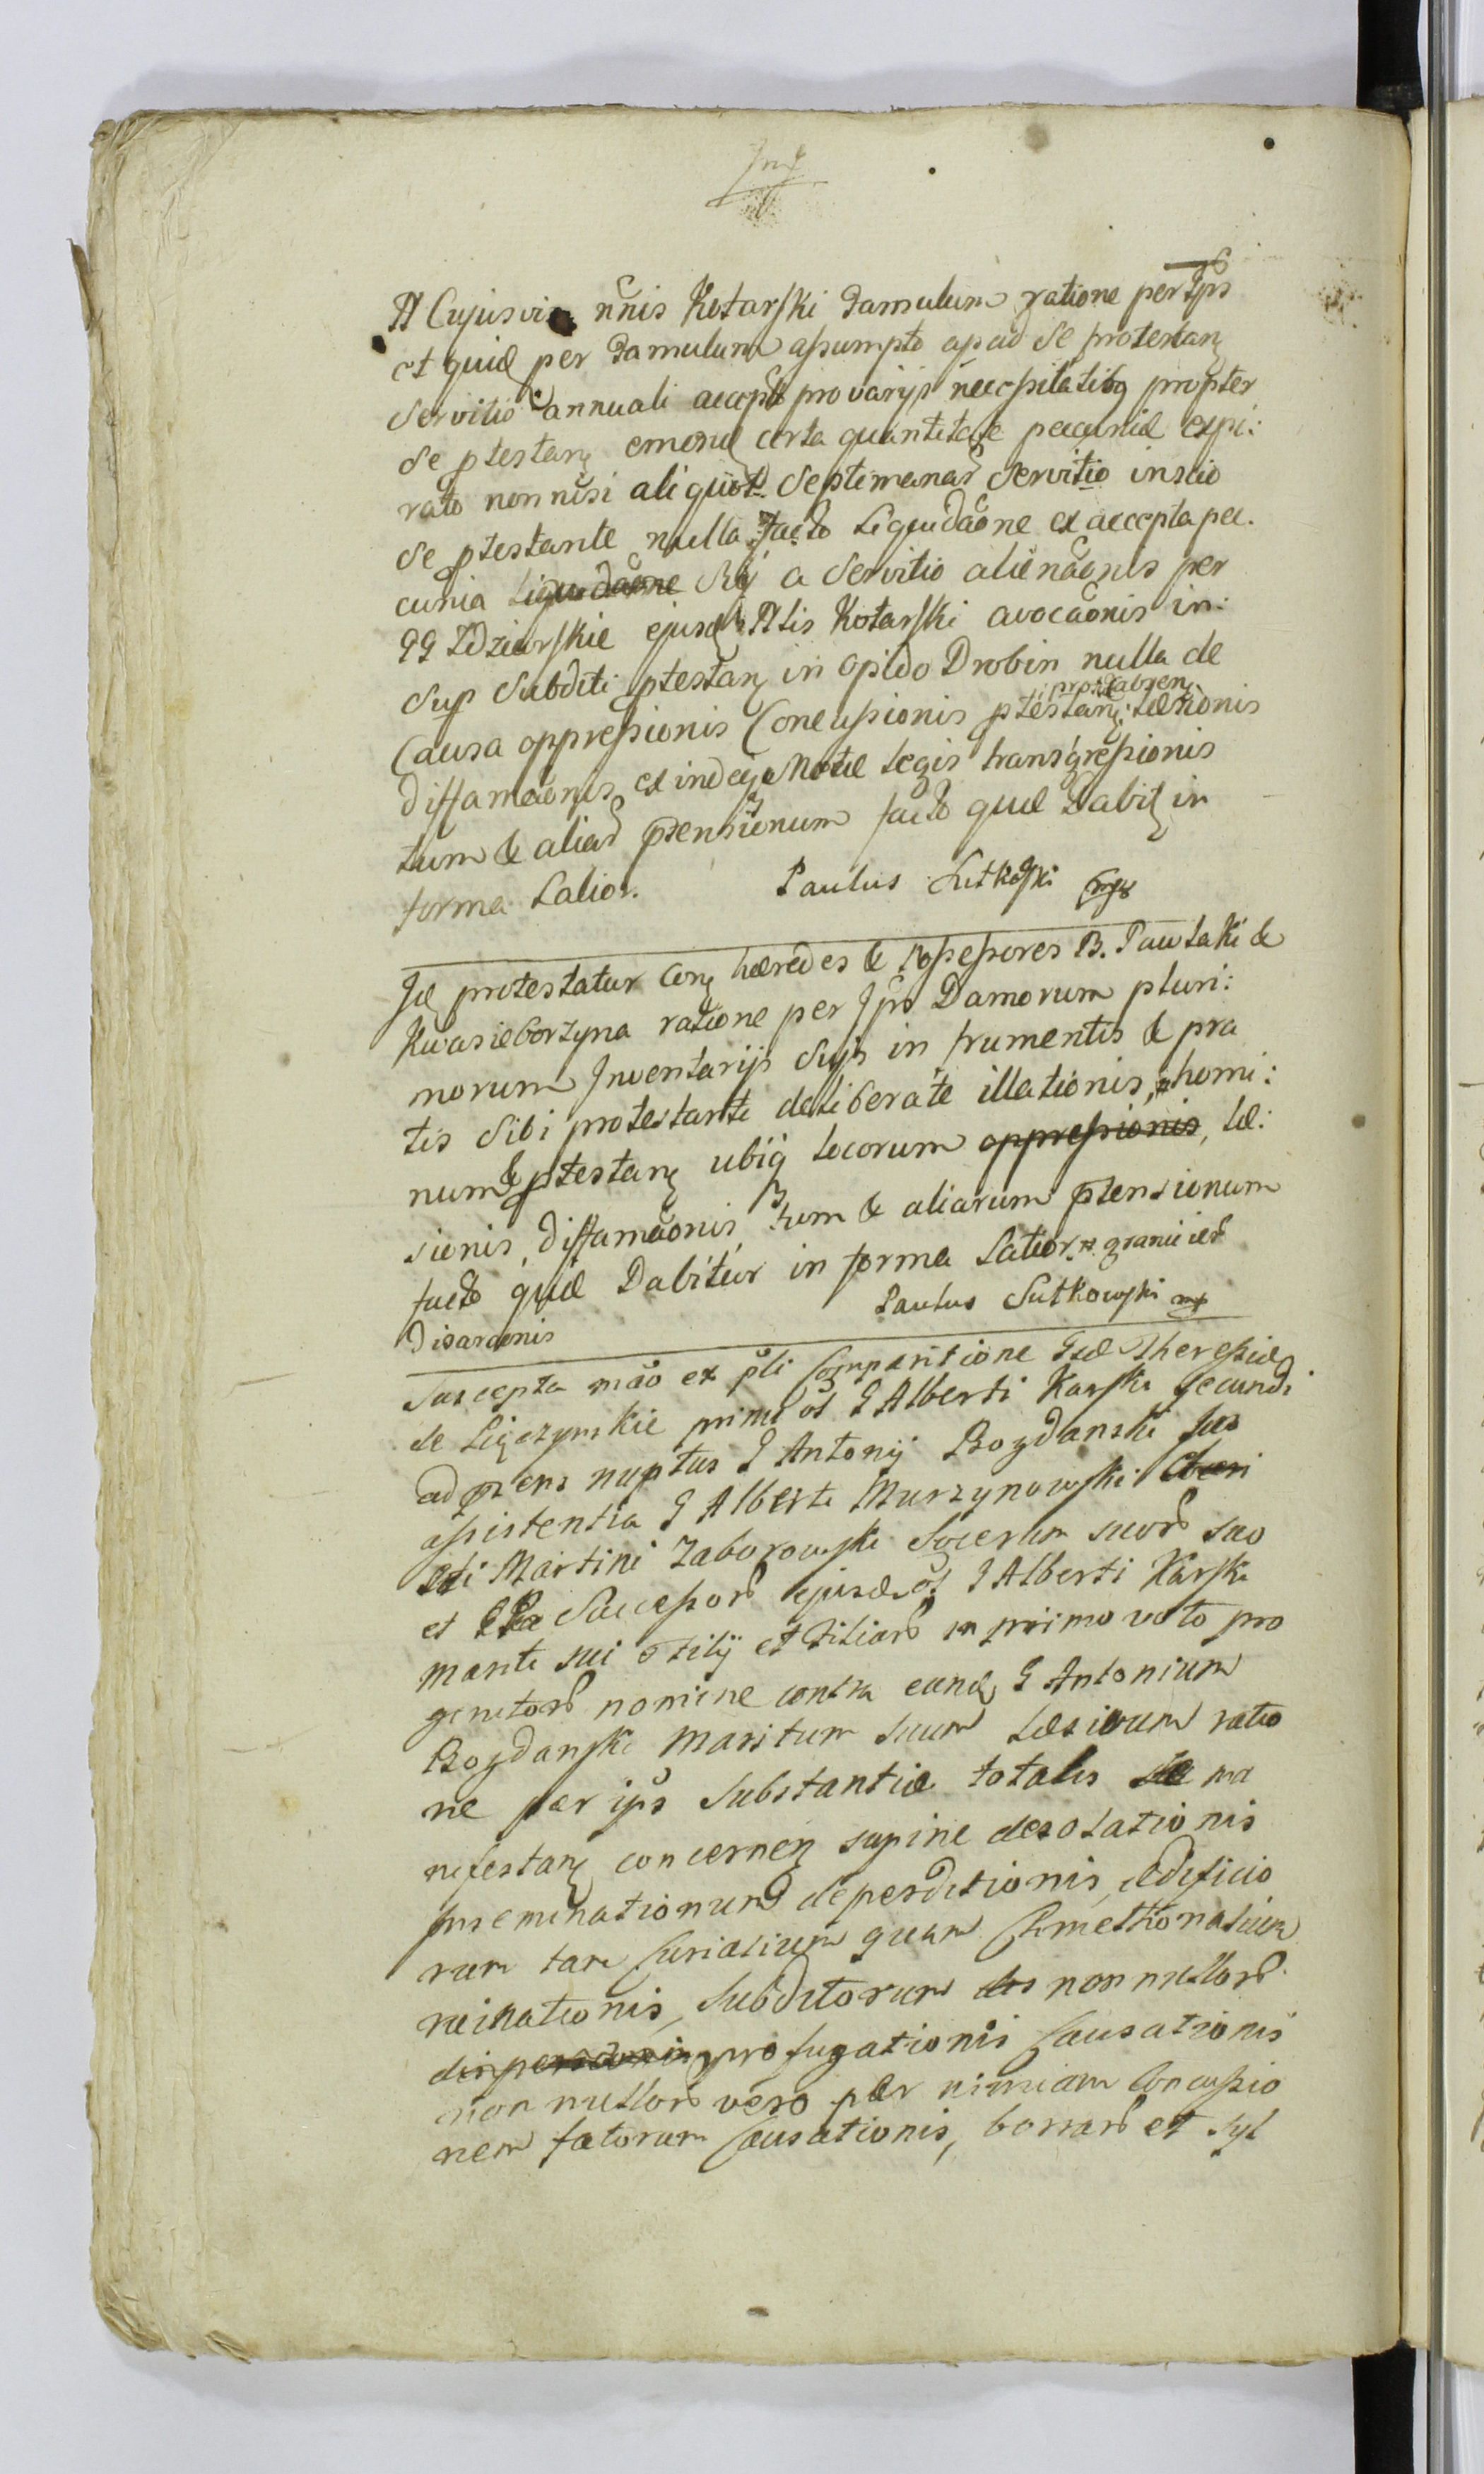 A Cujusvis nnis Kotarski Famulum ratione per Ips
et quid per Famulum assumpto apud se protestan
servitio annuali accepta pro varijs necessitatibq propter
se ptestan emend certa quantitate pecuniæ expi:
rato non nisi aliquot Septimanar servitio inscio
se ptestante nulla facto Liquidaone ex accepta pec.
cunia Liquidaone Sui a servitio alienaonis per
GG Zdziarskie ejusd Nlis Kotarski avocaonis in:
Sup Subditi ptestan in opido Drobin nulla de
Causa oppressionis Concussionis ptestan: læsionis
diffamaonis et inde Notæ Legis transgressionis
tum & aliar ptensionum facto quæ Dabit in
forma Latior. Paulus Lutkoski mp
Id protestatur Con hæredes & Possessores B. Pawlaki &
Kwasieborzyna ratione per Ips Damnorum pluri:
morum Inventarijs Sujs in frumentis & pra
tis Sibi protestanti deliberate illationis, homi:
num ptestan ubiq Locorum oppressionis, læ:
sionis, diffamaonis, tum & aliarum ptensionum
facto quæ Dabitur in forma Latior. granicier
Paulus Lutkowski mp
Disaraonis
Suscepta mão ex pli Comparitione Gsæ Theresiæ
de Ligczynskie primi ol G Alberti Karski secundi
ad præns nuptus G Antonij Bogdanski sua
assistentia G Alberti Murzynowski
Martini Zaborowski Socerum suor suo
et Successor ejusd ol G Alberti Karski
mariti sui Filij et Filiar in primo voto pro
genitor nomine contra eund G Antonium
Bogdanski Maritum suum Læsivum ratio
ne per ips Substantiæ totalis se ma
nifestan concernen supine desolationis
inseminationum deperditionis, ædificio
rum tam Curialium quam Cmethonalium
ruinationis, Subditorum non nullor
profugationis Causationis
non nullor vero per nimiam Concussio
nem fatorum Causationis, borrar et Syl